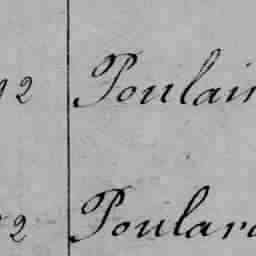 2 Poulain
2 Poulard